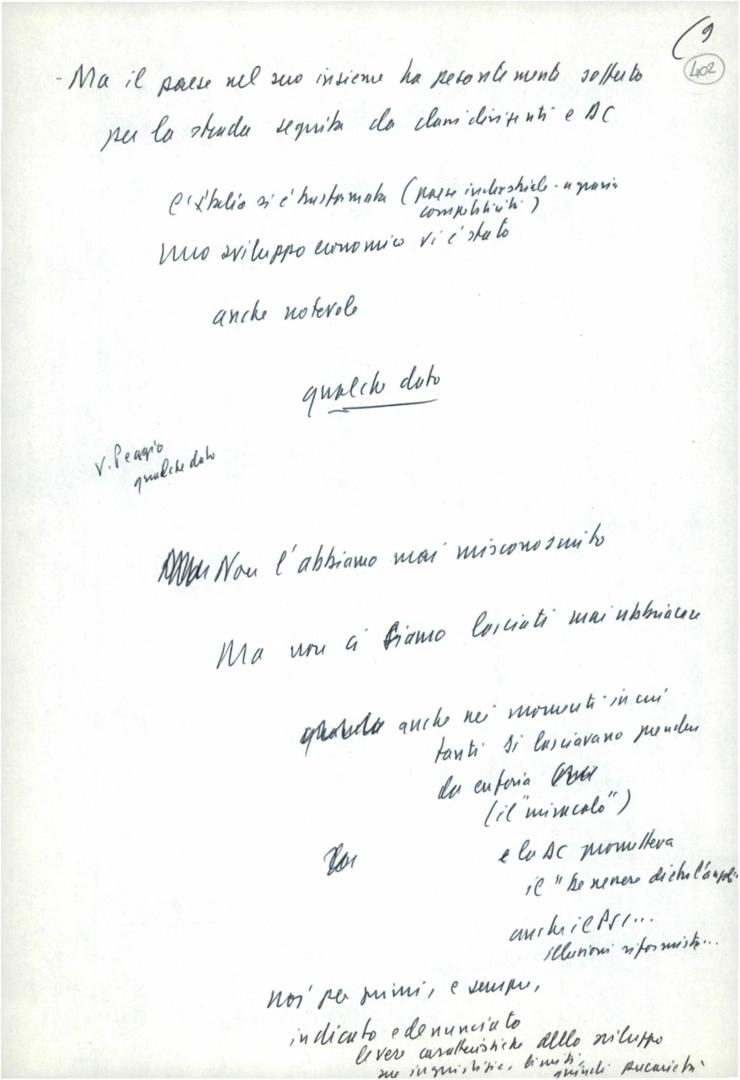 (9
402
- Ma il paese nel suo insieme ha pesantemente sofferto
per la strada seguita da classi dirigenti e DC
l'Italia si è trasformata (paese industriale - agrario
competitività)
Uno sviluppo economico vi è stato
anche notevole
qualche dato
v. Peggio
qualche dato
Non l'abbiamo mai misconosciuto
Ma non ci siamo lasciati mai ubbriacare
anche nei momenti in cui
tanti si lasciavano prendere
da euforia
(il "miracolo")
e la DC prometteva
il "benessere dietro l'angolo
anche il PSI...
illusioni riformiste...
noi per primi, e sempre,
indicato e denunciato
le vere caratteristiche dello sviluppo
sue ingiustizie, limiti,
quindi precarietà